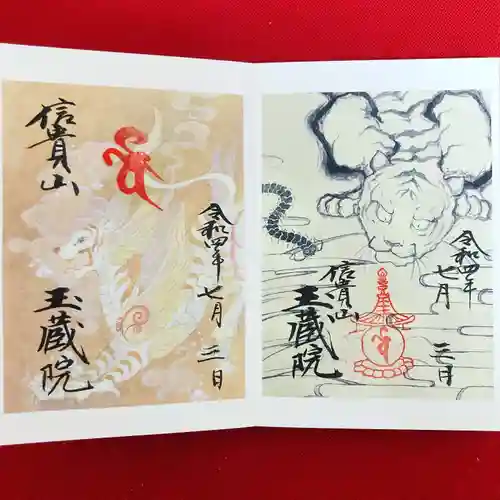 令和四年
七月
三日
信貴山
玉蔵院
令和四年
七月
三日
信貴山
玉蔵院